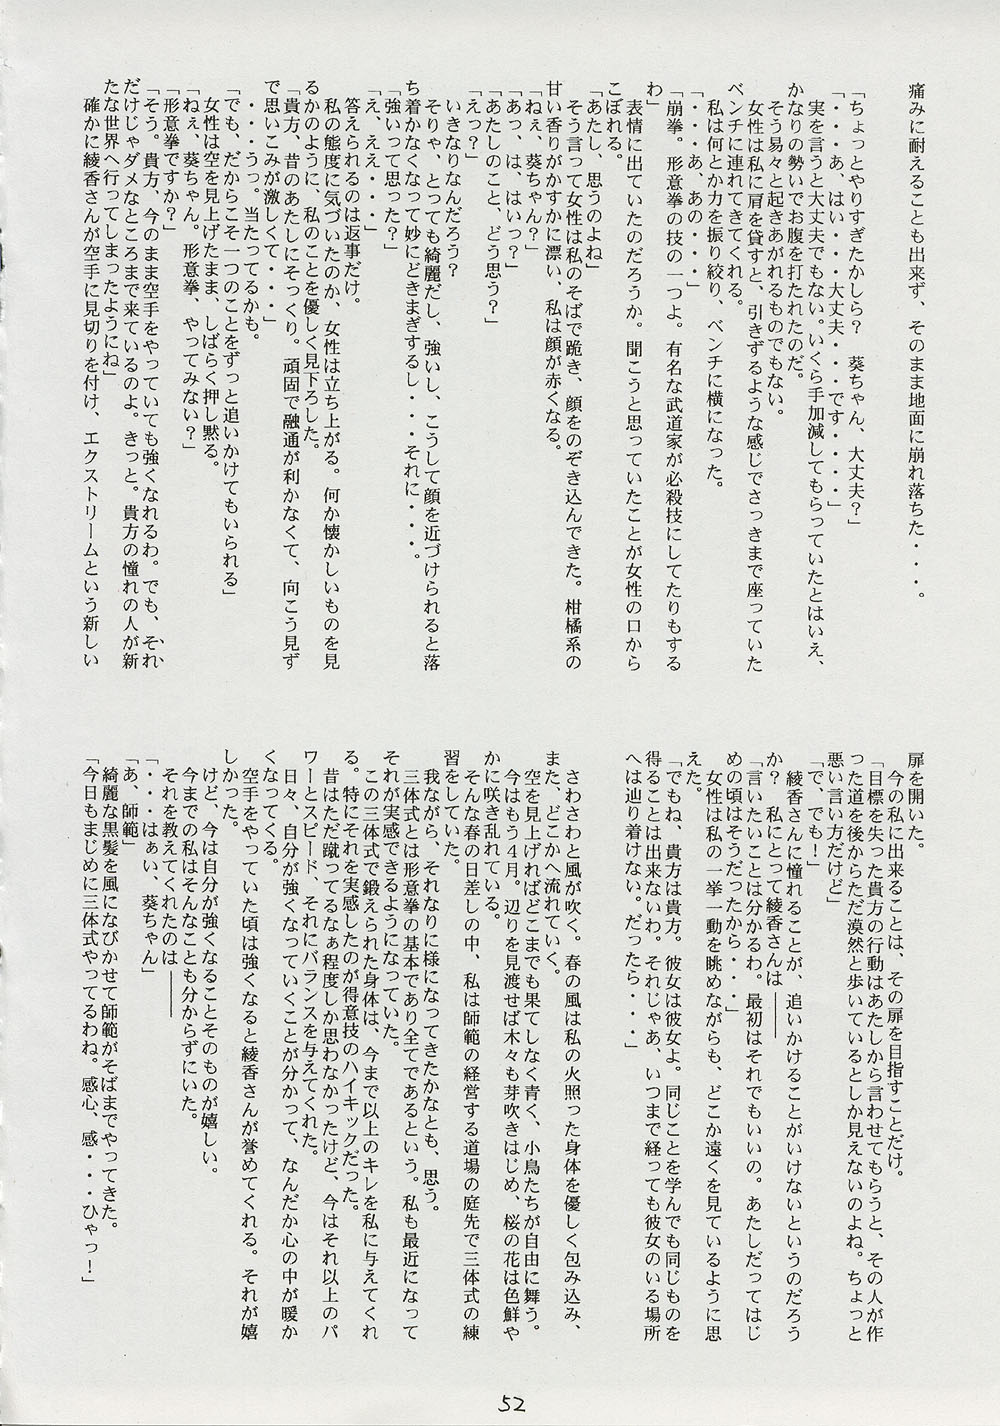 痛みに耐えることも出来ず、そのまま地面に崩れ落ちた・・・。
「ちょっとやりすぎたかしら？　葵ちゃん、大丈夫？」
「・・・あ、はい・・・大丈夫・・・です・・・」
　実を言うと大丈夫でもない。いくら手加減してもらっていたとはいえ、
かなりの勢いでお腹を打たれたのだ。
　そう易々と起きあがれるものでもない。
　女性は私に肩を貸すと、引きずるような感じでさっきまで座っていた
ベンチに連れてきてくれる。
　私は何とか力を振り絞り、ベンチに横になった。
「・・・あ、あの・・・」
「崩拳。形意拳の技の一つよ。有名な武道家が必殺技にしてたりもする
わ」
　表情に出ていたのだろうか。聞こうと思っていたことが女性の口から
こぼれる。
「あたし、思うのよね」
　そう言って女性は私のそばで跪き、顔をのぞき込んできた。柑橘系の
甘い香りがかすかに漂い、私は顔が赤くなる。
「ねぇ、葵ちゃん？」
「あっ、は、はいっ？」
「あたしのこと、どう思う？」
「えっ？」
　いきなりなんだろう？
　そりゃ、とっても綺麗だし、強いし、こうして顔を近づけられると落
ち着かなくなって妙にどきまぎするし・・・それに・・・。
「強いって思った？」
「え、ええ・・・」
　答えられるのは返事だけ。
　私の態度に気づいたのか、女性は立ち上がる。何か懐かしいものを見
るかのように、私のことを優しく見下ろした。
「貴方、昔のあたしにそっくり。頑固で融通が利かなくて、向こう見ず
で思いこみが激しくて・・・」
　・・・うっ。当たってるかも。
「でも、だからこそ一つのことをずっと追いかけてもいられる」
　女性は空を見上げたまま、しばらく押し黙る。
「ねぇ、葵ちゃん。形意拳、やってみない？」
「形意拳ですか？」
「そう。貴方、今のまま空手をやっていても強くなれるわ。でも、それ
だけじゃダメなところまで来ているのよ。きっと。貴方の憧れの人が新
たな世界へ行ってしまったようにね」
　確かに綾香さんが空手に見切りを付け、エクストリームという新しい
扉を開いた。
　今の私に出来ることは、その扉を目指すことだけ。
「目標を失った貴方の行動はあたしから言わせてもらうと、その人が作
った道を後からただ漠然と歩いているとしか見えないのよね。ちょっと
悪い言い方だけど」
「で、でも！」
　綾香さんに憧れることが、追いかけることがいけないというのだろう
か？　私にとって綾香さんは――
「言いたいことは分かるわ。最初はそれでもいいの。あたしだってはじ
めの頃はそうだったから・・・」
　女性は私の一挙一動を眺めながらも、どこか遠くを見ているように思
えた。
「でもね、貴方は貴方。彼女は彼女よ。同じことを学んでも同じものを
得ることは出来ないわ。それじゃあ、いつまで経っても彼女のいる場所
へは辿り着けない。だったら・・・」
　さわさわと風が吹く。春の風は私の火照った身体を優しく包み込み、
また、どこかへ流れていく。
　空を見上げればどこまでも果てしなく青く、小鳥たちが自由に舞う。
　今はもう４月。辺りを見渡せば木々も芽吹きはじめ、桜の花は色鮮や
かに咲き乱れている。
　そんな春の日差しの中、私は師範の経営する道場の庭先で三体式の練
習をしていた。
　我ながら、それなりに様になってきたかなとも、思う。
　三体式とは形意拳の基本であり全てであるという。私も最近になって
それが実感できるようになっていた。
　この三体式で鍛えられた身体は、今まで以上のキレを私に与えてくれ
る。特にそれを実感したのが得意技のハイキックだった。
　昔はただ蹴ってるなぁ程度しか思わなかったけど、今はそれ以上のパ
ワーとスピード、それにバランスを与えてくれた。
　日々、自分が強くなっていくことが分かって、なんだか心の中が暖か
くなってくる。
　空手をやっていた頃は強くなると綾香さんが誉めてくれる。それが嬉
しかった。
　けど、今は自分が強くなることそのものが嬉しい。
　今までの私はそんなことも分からずにいた。
　それを教えてくれたのは――
「・・・はぁい、葵ちゃん」
「あ、師範」
　綺麗な黒髪を風になびかせて師範がそばまでやってきた。
「今日もまじめに三体式やってるわね。感心、感・・・ひゃっ！」
52